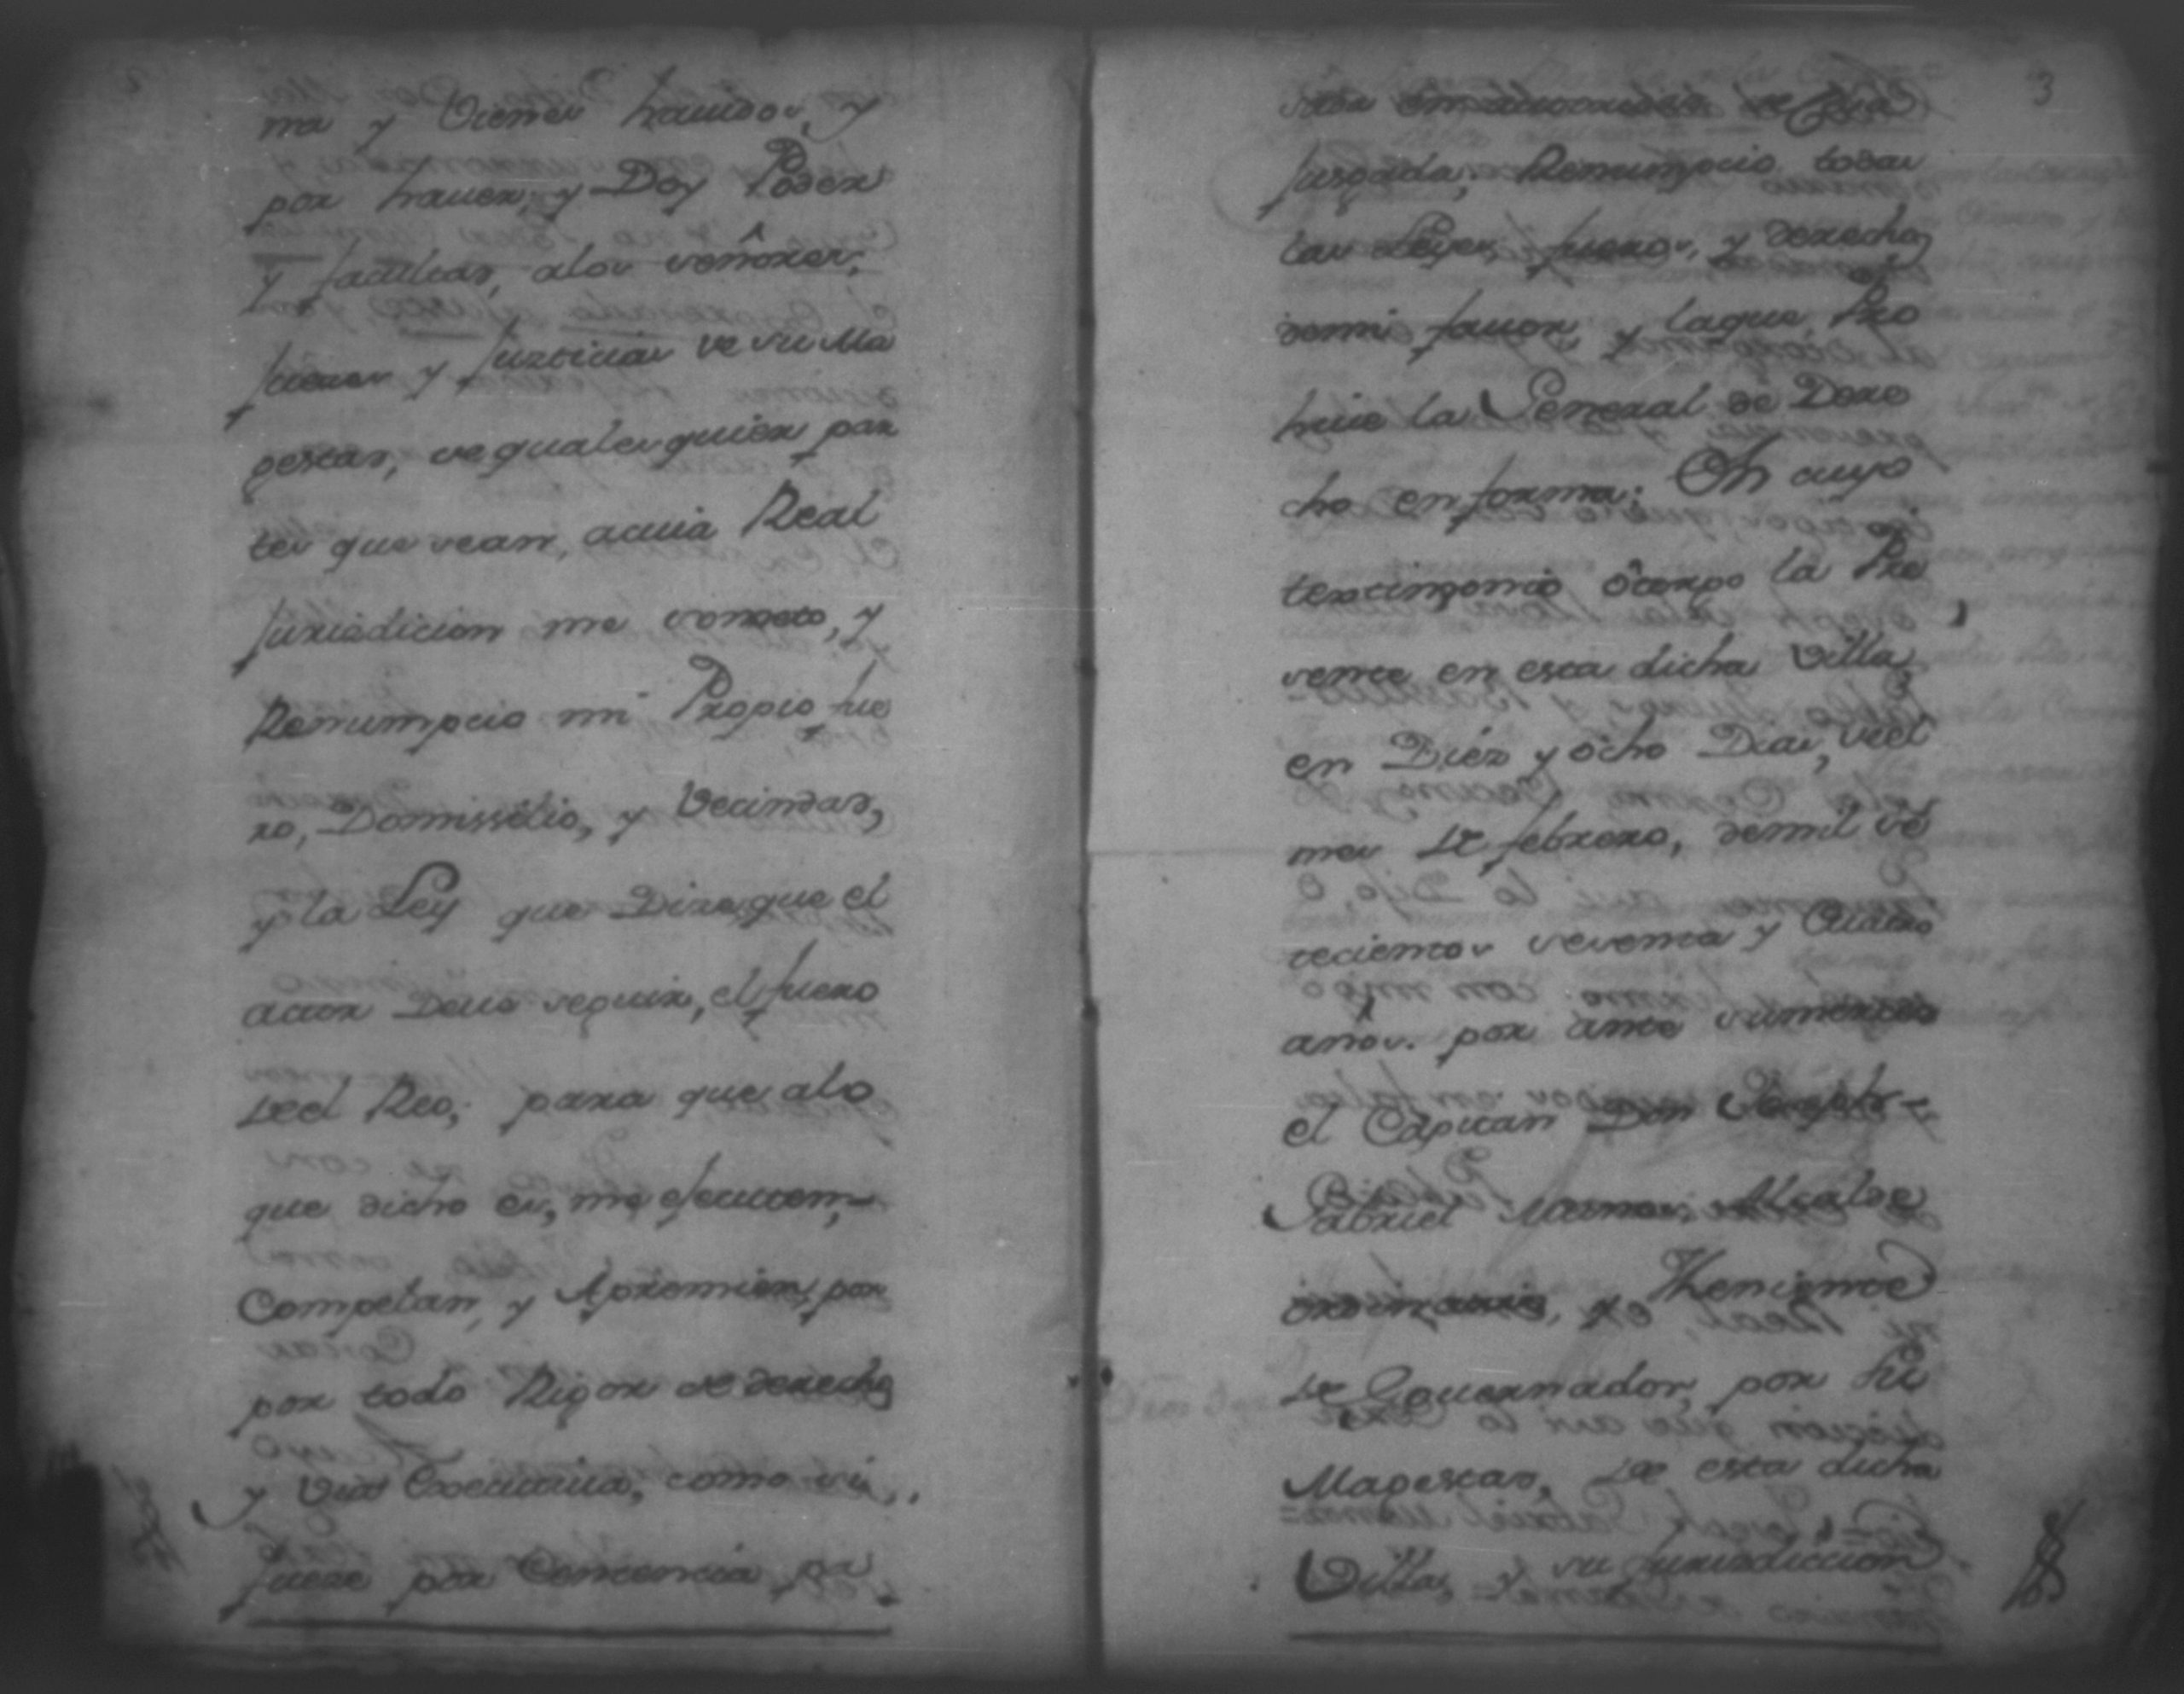 na y Vienes hauidos, y
por hauer, y Doy Poder
y facultad, alos señores,
Jueses y Justicias de su Ma
gestad, de qualesquier par
tes que sean, acuia Real
Jurisdicion me someto, y
Renumpcio mi Propio fue
ro, Domissilio, y Vecindad,
y la Ley que Dize, que el
actor Deue seguir, el fuero
del Reo, para que alo
que dicho es, me efecuten,
Compelan, y Apremien, por
por todo Rigor de derecho
y Via Executiua, como si
fuese por Sentencia pa
sada en de Cosa
Jusgada, Renumpcio todas
las Leyes, fueros, y derechos
demi fauor, y laque Pro
hiue la General de Dere
cho en forma; En cuyo
testimonio ôtorgo la Pre
sente en esta dicha Villa,
en Diéz y ôcho Dias, del
mes de febrero, demil sê
tecientos setenta y Cuatro
años. por ante sumerced
el Capitan Don Joseph
Gabriel Alcalde
ordinario, y Theniente
de Gouernador, por Su
Magestad, de esta dicha
Villa, y su Jurisdiccion
3